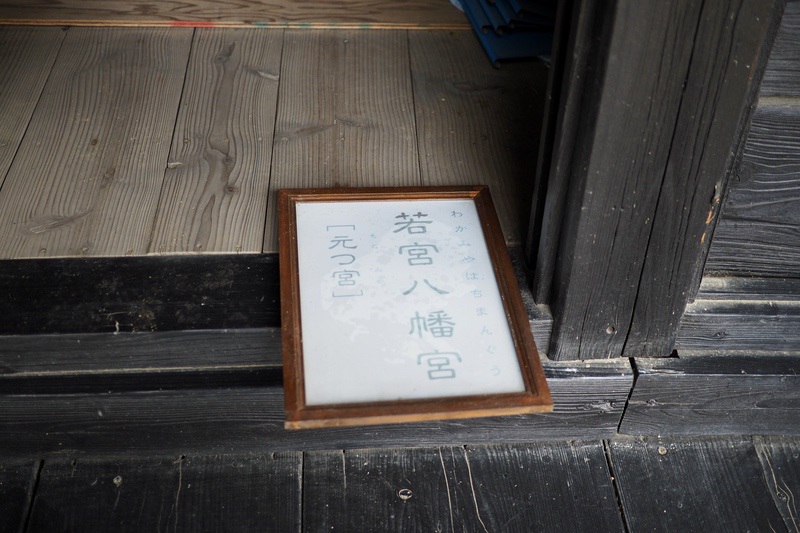 わかみやはちまんぐう
若宮八幡宮
［元つ宮］